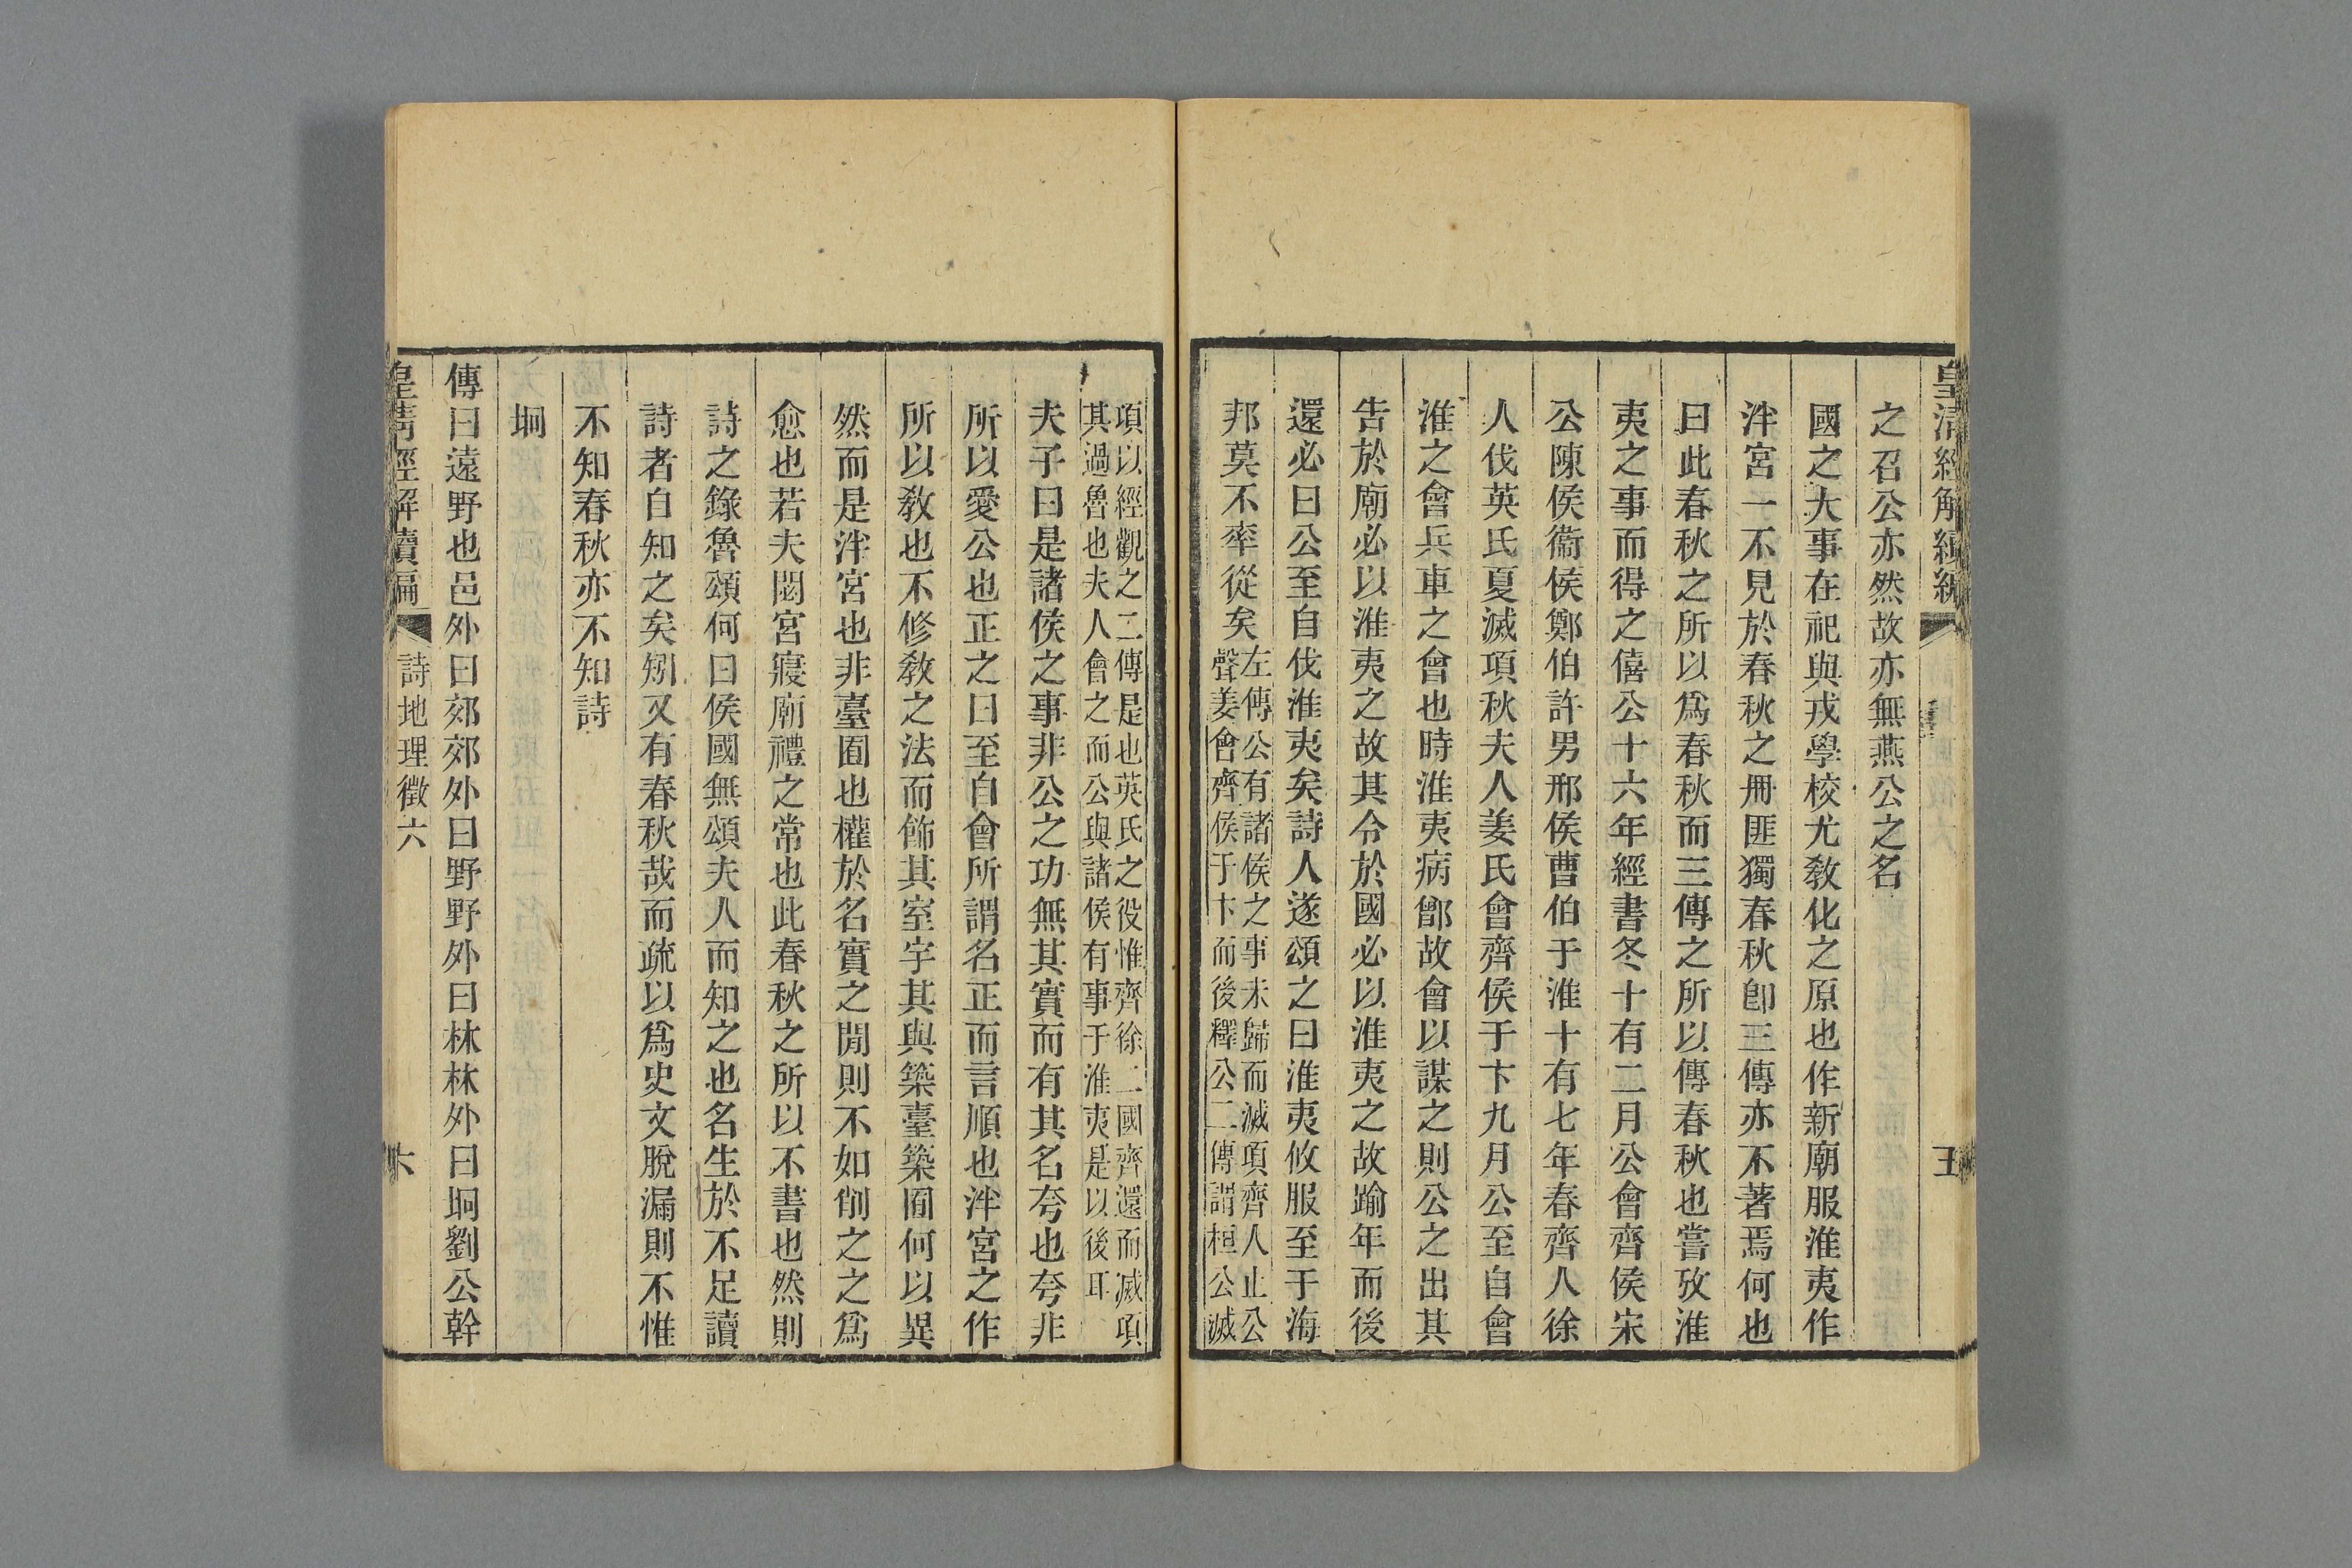 皇清經解續編
五
之召公亦然故亦無燕公之名
國之大事在祀與戎學校尤敎化之原也作新廟服淮夷作
泮宮一不見於春秋之冊匪獨春秋卽三傳亦不著焉何也
曰此春秋之所以爲春秋而三傳之所以傳春秋也嘗攷淮
夷之事而得之僖公十六年經書冬十有二月公會齊侯宋
公陳侯衞侯鄭伯許男邢侯曹伯于淮十有七年春齊人徐
人伐英氏夏滅項秋夫人姜氏會齊侯于卞九月公至自會
淮之會兵車之會也時淮夷病鄫故會以謀之則公之出其
告於廟必以淮夷之故其令於國必以淮夷之故踰年而後
還必曰公至自伐淮夷矣詩人遂頌之曰淮夷攸服至于海
邦莫不率從矣
左傳公有諸侯之事未歸而滅項齊人止公
聲姜會齊侯于卞而後釋公二傳謂桓公滅
項以經觀之二傳是也英氏之役惟齊徐二國齊還而滅項
其過魯也夫人會之而公與諸侯有事于淮夷是以後耳
夫子曰是諸侯之事非公之功無其實而有其名夸也夸非
所以愛公也正之曰至自會所謂名正而言順也泮宮之作
所以敎也不修敎之法而飾其室宇其與築臺築囿何以異
然而是泮宮也非臺囿也權於名實之閒則不如削之之爲
愈也若夫閟宮寢廟禮之常也此春秋之所以不書也然則
詩之錄魯頌何曰侯國無頌夫人而知之也名生於不足讀
詩者自知之矣矧又有春秋哉而疏以爲史文脫漏則不惟
不知春秋亦不知詩
坰
傳曰遠野也邑外曰郊郊外曰野野外曰林林外曰坰劉公幹
皇淸經解續編
詩地理徵六
六